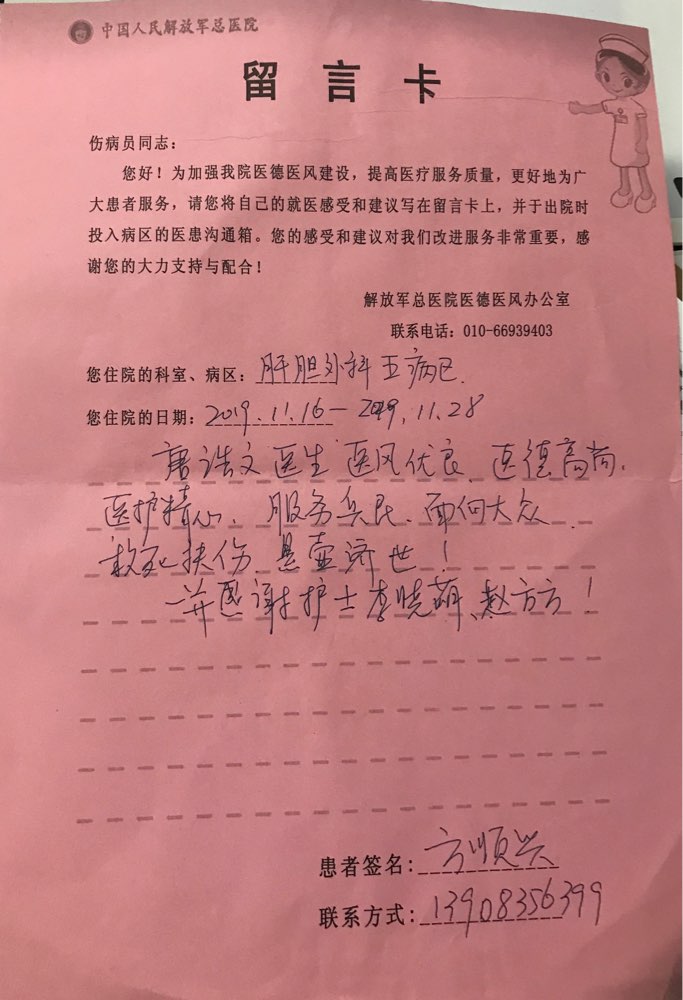 中国人民解放军总医院
留言卡
伤病员同志：
您好！为加强我院医德医风建设，提高医疗服务质量，更好地为广
大患者服务，请您将自己的就医感受和建议写在留言卡上，并于出院时
投入病区的医患沟通箱。您的感受和建议对我们改进服务非常重要，感
谢您的大力支持与配合！
解放军总医院医德医风办公室
联系电话：010-66939403
您住院的科室、病区：肝胆外科五病区
您住院的日期：2019.11.16—2019.11.28
唐浩文医生医风优良、医德高尚、
医护精心、服务兵民、面向大众、
救死扶伤、悬壶济世！
一并感谢护士李晓萌、赵方方！
患者签名：方顺兴
联系方式：13908356399